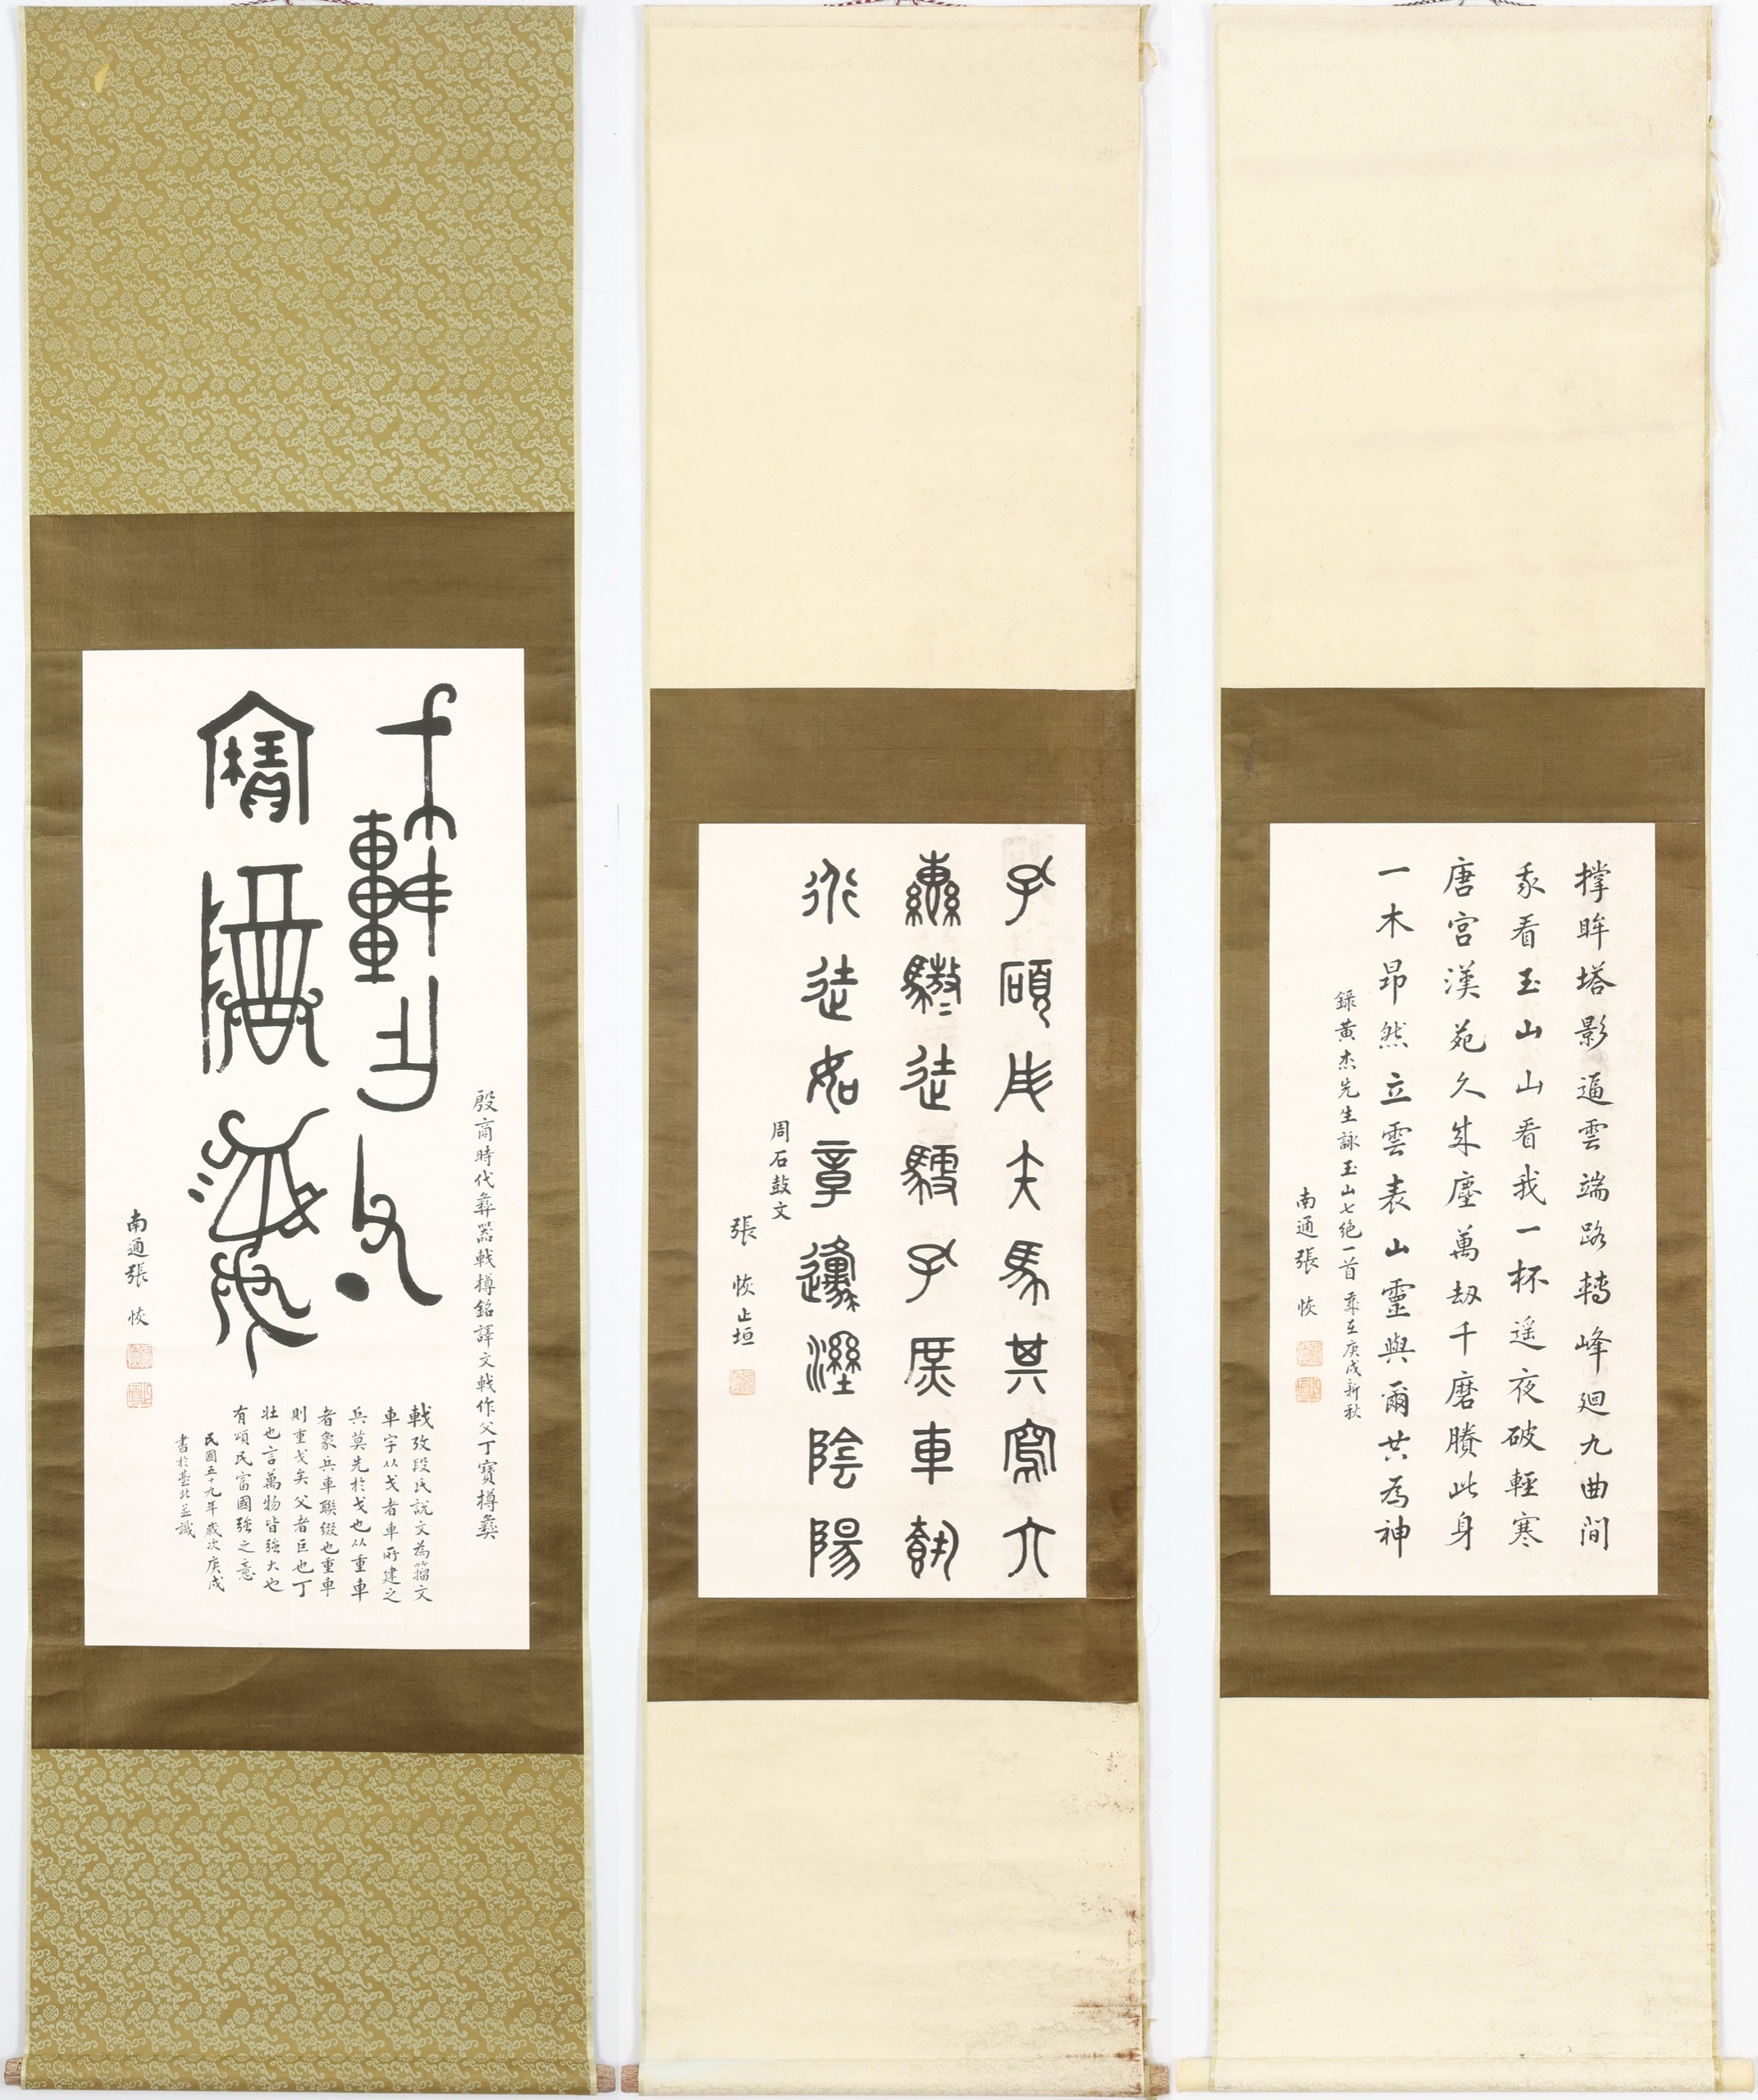 殷商時代彝器戟樽銘譯文戟作父丁寶樽彝
戟作父丁
寶樽彝
戟攷段氏說文為籀文
車字从戈者車所建之
兵莫先於戈也从重車
者象兵車聯綴也重車
則重戈矣父者巨也丁
壯也言萬物皆強大也
有頌民富國強之意
民國五十九年歲次庚戌
書於臺北並識
南通張恢
孔碩彤矢馬其寫六
轡驁〻徒馭孔庶車載
行徒如章邍溼陰陽
周石鼓文
張恢止垣
撑眸塔影逼雲端路轉峰迴九曲間
我看玉山山看我一杯遥夜破輕寒
唐宮漢苑久成塵萬劫千磨賸此身
一木昂然立雲表山靈與爾共為神
錄黃杰先生詠玉山七絕一首歲在庚戌新秋
南通張恢